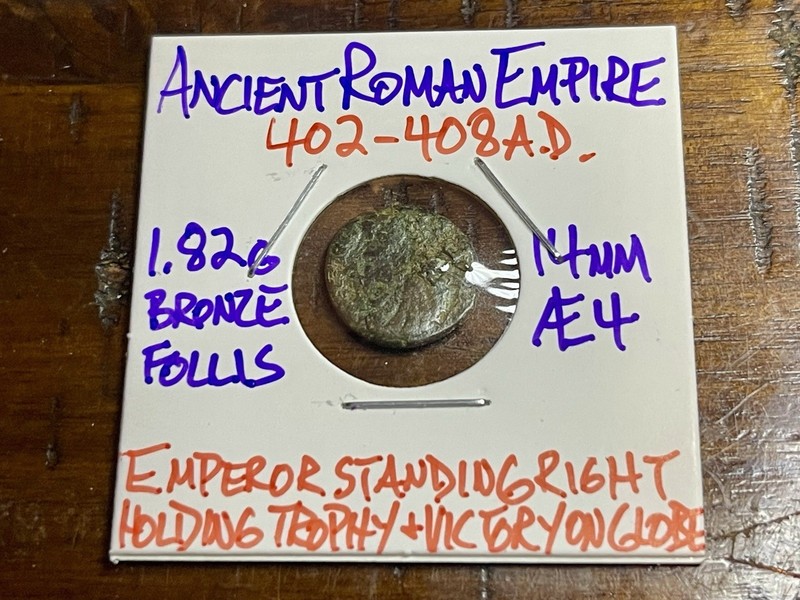 ANCIENT ROMAN EMPIRE
402-408 A.D.
1.82G
BRONZE
FOLLIS
14MM
Æ4
EMPEROR STANDING RIGHT
HOLDING TROPHY + VICTORY ON GLOBE